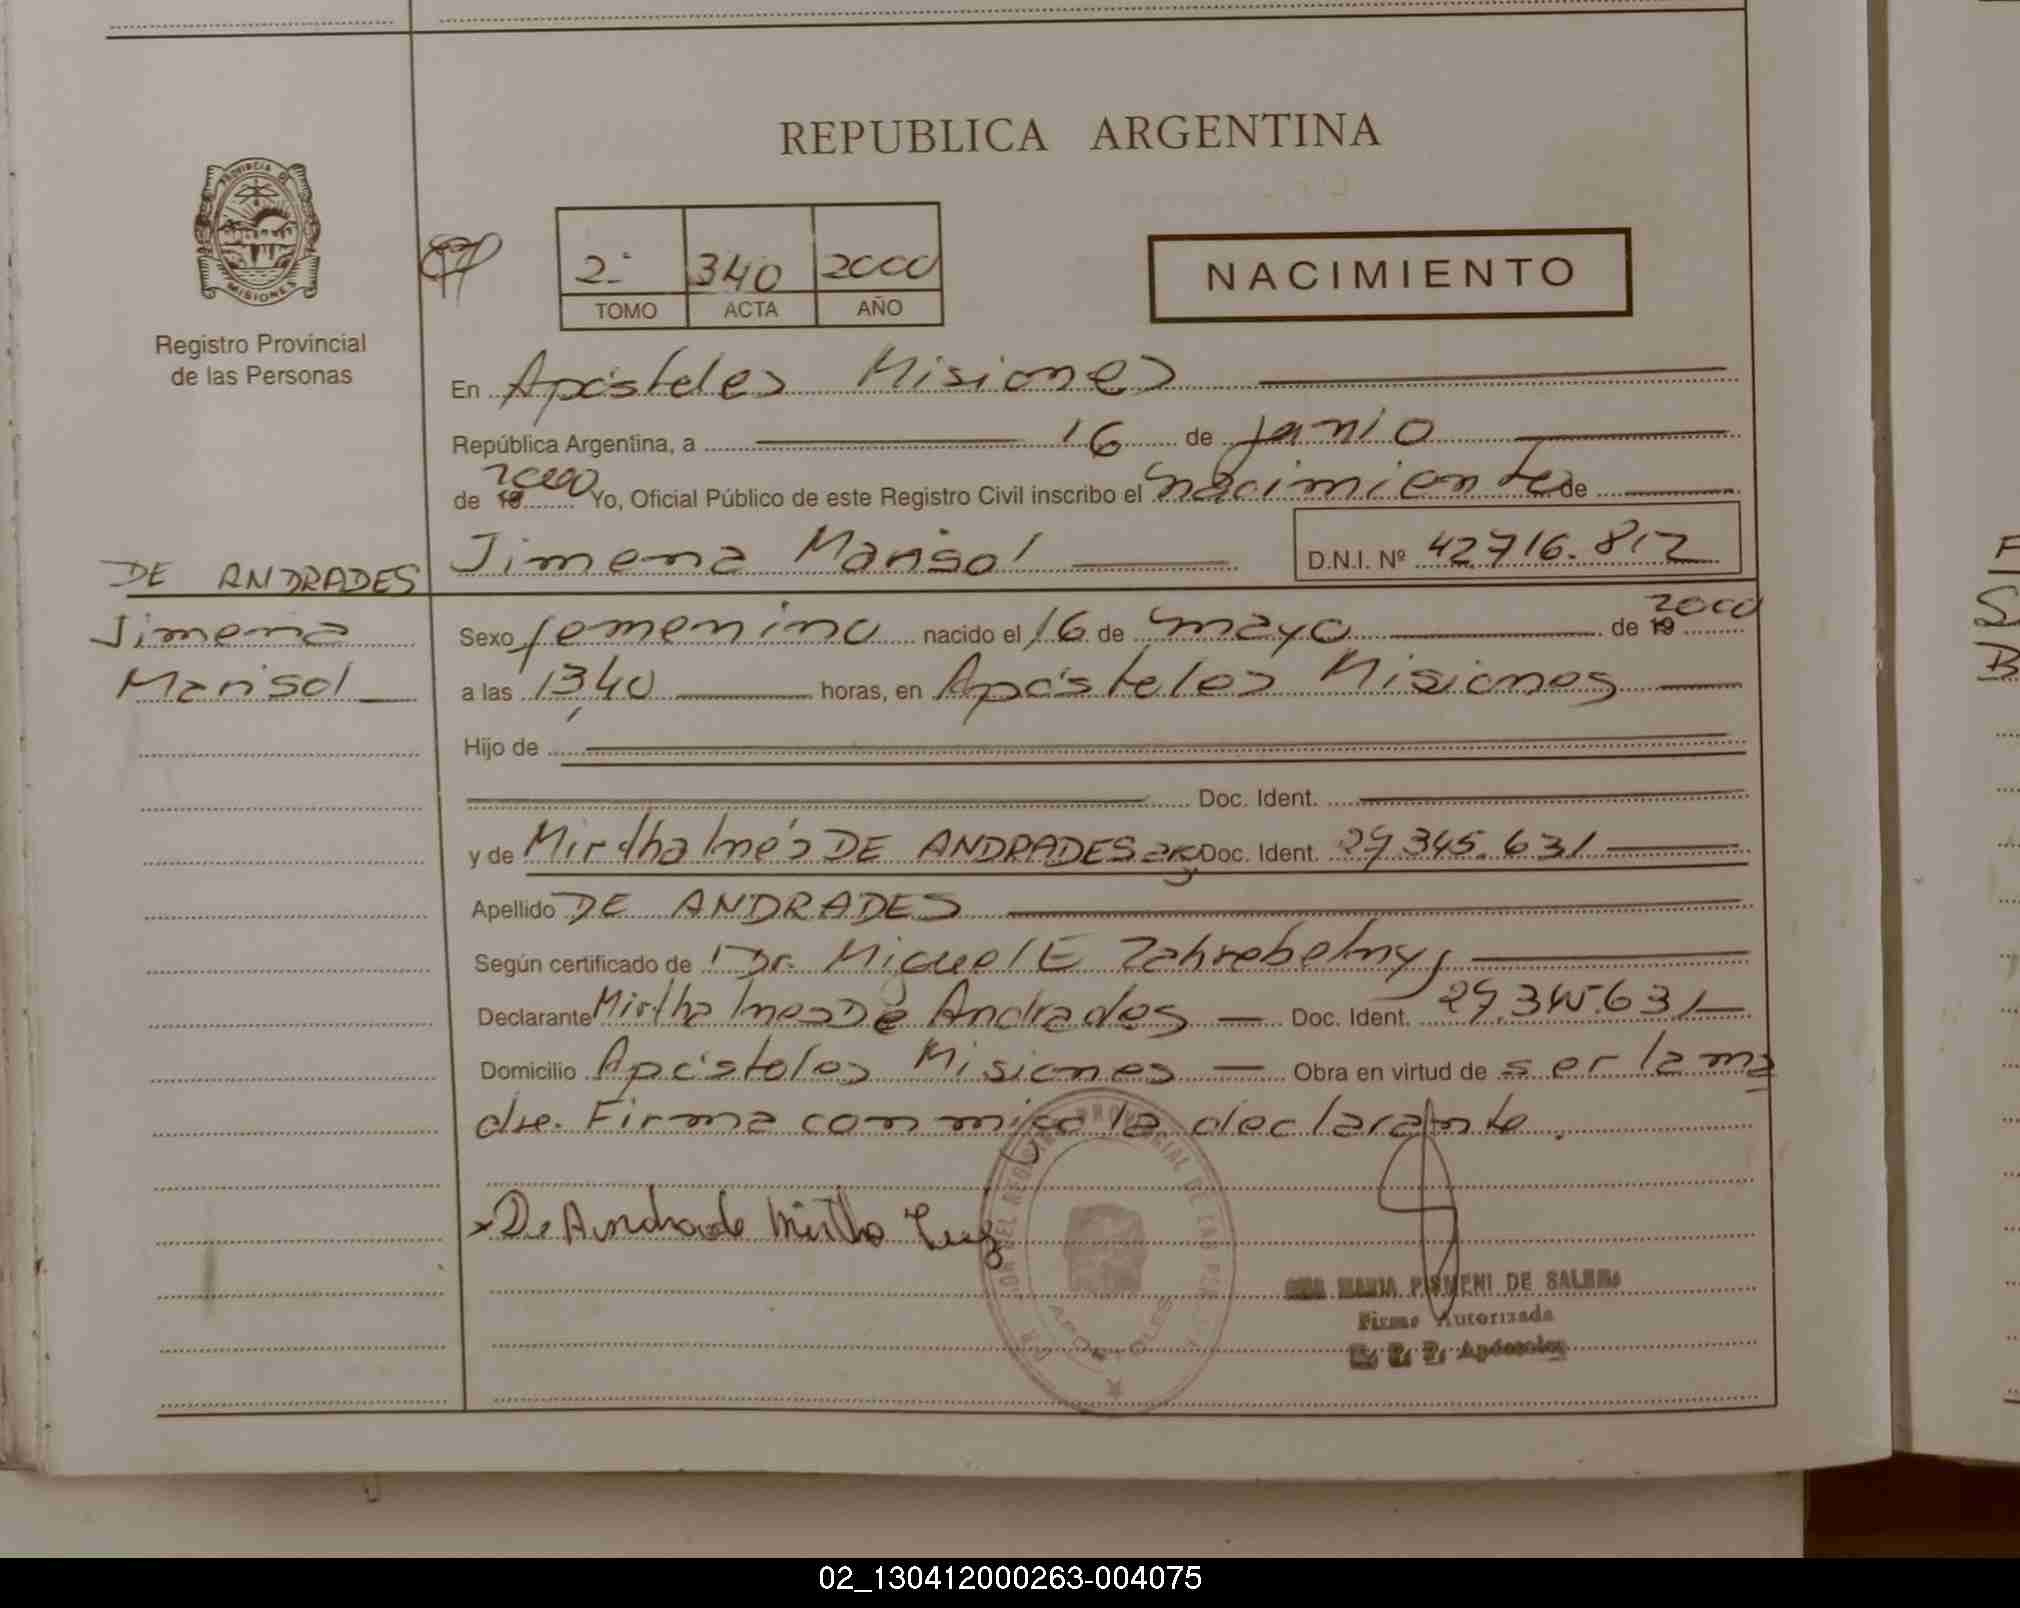 REPUBLICA ARGENTINA
PROVINCIA DE
MISIONES
Registro Provincial
de las Personas
2º 340 2000
TOMO ACTA AÑO
NACIMIENTO
En Apóstoles Misiones
República Argentina, a 16 de junio
de 19 2000 Yo, Oficial Público de este Registro Civil inscribo el nacimiento de
Jimena Marisol D.N.I. Nº 42.716.812
DE ANDRADES
Jimena
Marisol
Sexo femenino nacido el 16 de mayo de 19 2000
a las 13,40 horas, en Apóstoles Misiones
Hijo de
Doc. Ident.
y de Mirtha Inés DE ANDRADES arg Doc. Ident. 29.345.631
Apellido DE ANDRADES
Según certificado de Dr. Miguel E Zahrebelny
Declarante Mirtha Ines De Andrades Doc. Ident. 29.345.631
Domicilio Apóstoles Misiones Obra en virtud de ser la ma
dre. Firma conmigo la declarante.
De Andrade Mirtha
MARIA PISMENI DE
Firma Autorizada
R. P. P. Apóstoles
APOSTOLES
02_130412000263-004075